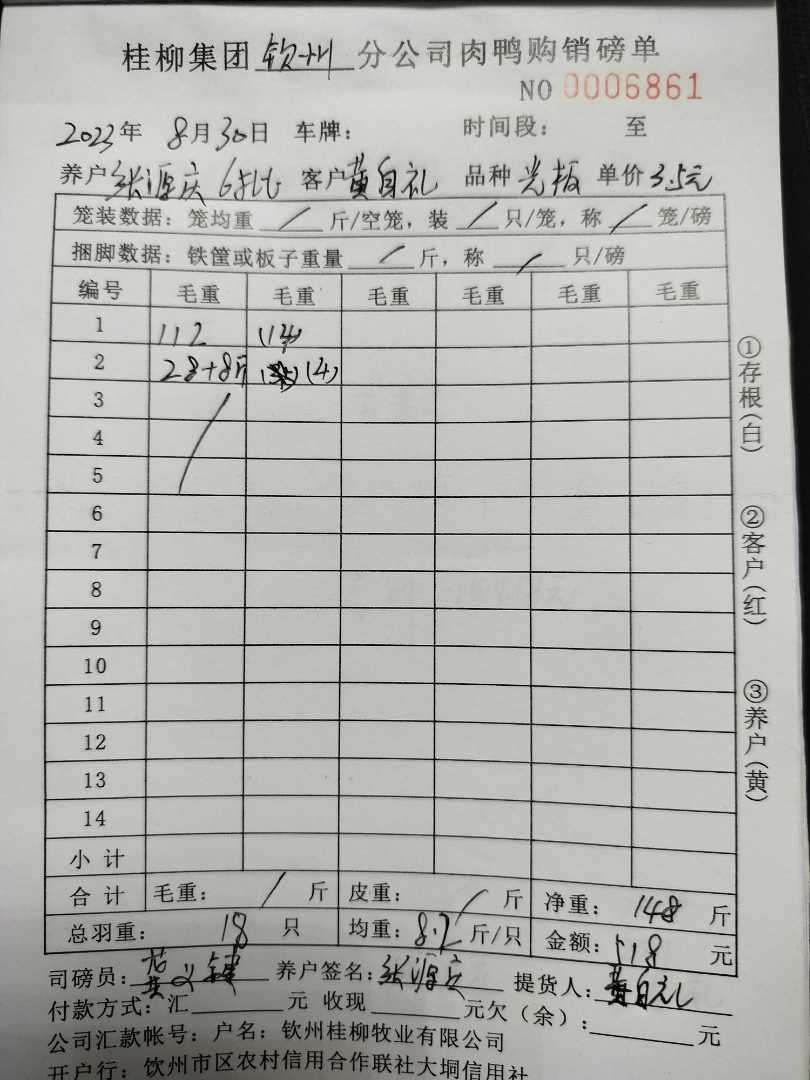 桂柳集团 钦州 分公司肉鸭购销磅单
NO 0006861
2023年 8月30日 车牌: 时间段: 至
养户 张源庆 6批 客户 黄自礼 品种 光板 单价 3.5元
笼装数据: 笼均重 / 斤/空笼, 装 / 只/笼, 称 / 笼/磅
捆脚数据: 铁筐或板子重量 / 斤, 称 / 只/磅
编号 毛重 毛重 毛重 毛重 毛重 毛重
1 112 (14)
2 28+8斤 (4)
3
4
5
6
7
8
9
10
11
12
13
14
小计
合计 毛重: / 斤 皮重: / 斤 净重: 148 斤
总羽重: 18 只 均重: 8.2 斤/只 金额: 518 元
司磅员: 黄 养户签名: 张源庆 提货人: 黄自礼
付款方式: 汇 元 收现 元欠(余): 元
公司汇款帐号: 户名: 钦州桂柳牧业有限公司
开户行: 钦州市区农村信用合作联社大垌信用社
①存根(白)
②客户(红)
③养户(黄)